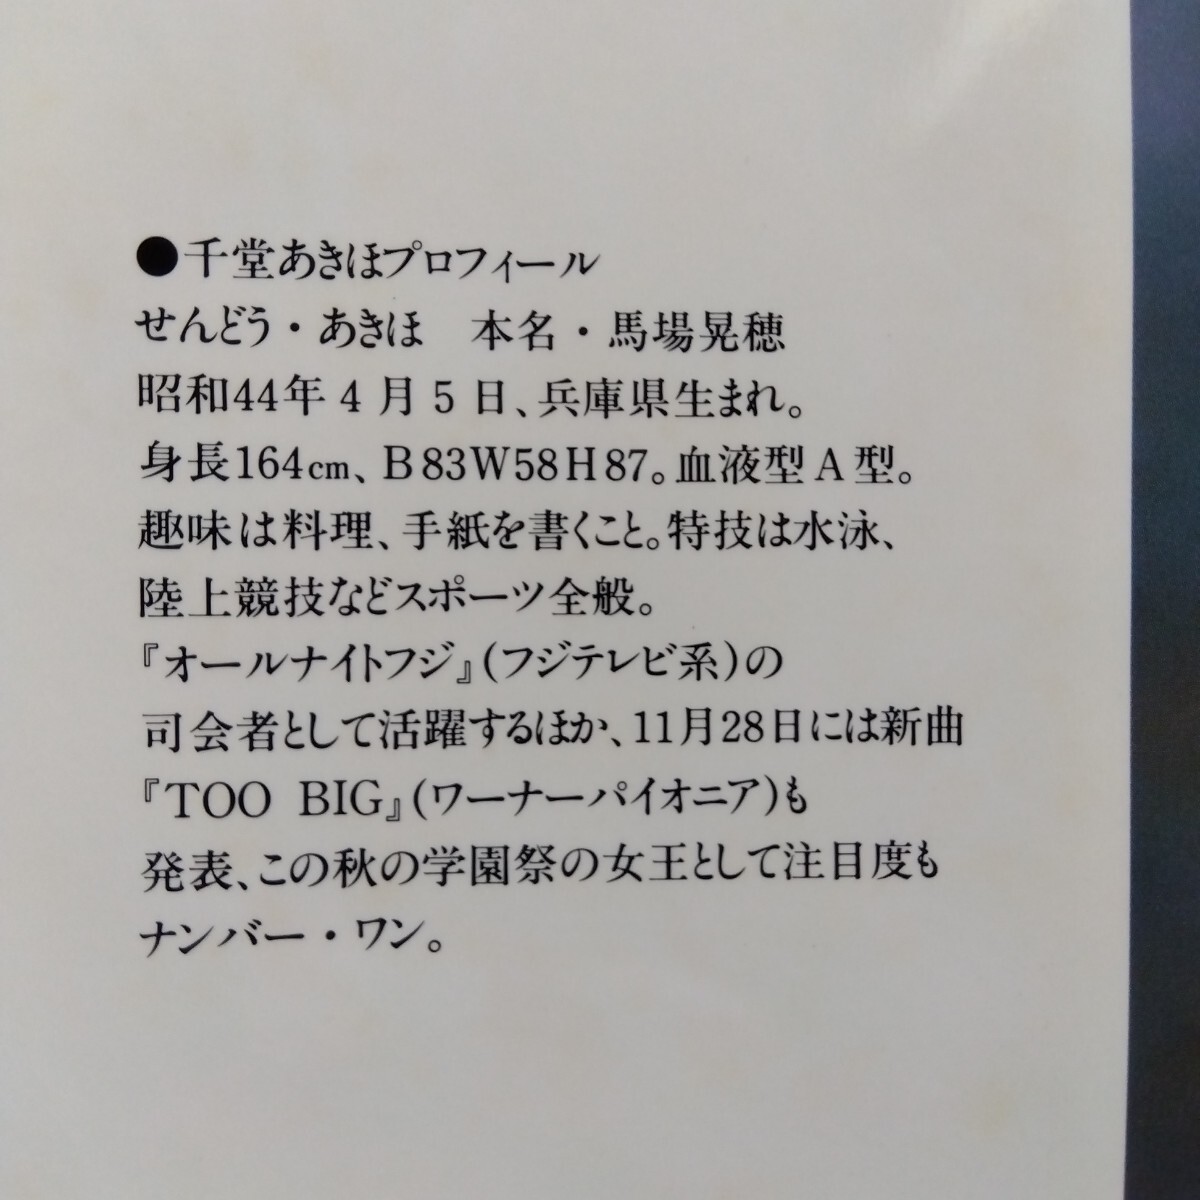 ●千堂あきほプロフィール
せんどう・あきほ　本名・馬場晃穂
昭和44年4月5日、兵庫県生まれ。
身長164cm、B83W58H87。血液型A型。
趣味は料理、手紙を書くこと。特技は水泳、
陸上競技などスポーツ全般。
『オールナイトフジ』(フジテレビ系)の
司会者として活躍するほか、11月28日には新曲
『TOO BIG』(ワーナーパイオニア)も
発表、この秋の学園祭の女王として注目度も
ナンバー・ワン。